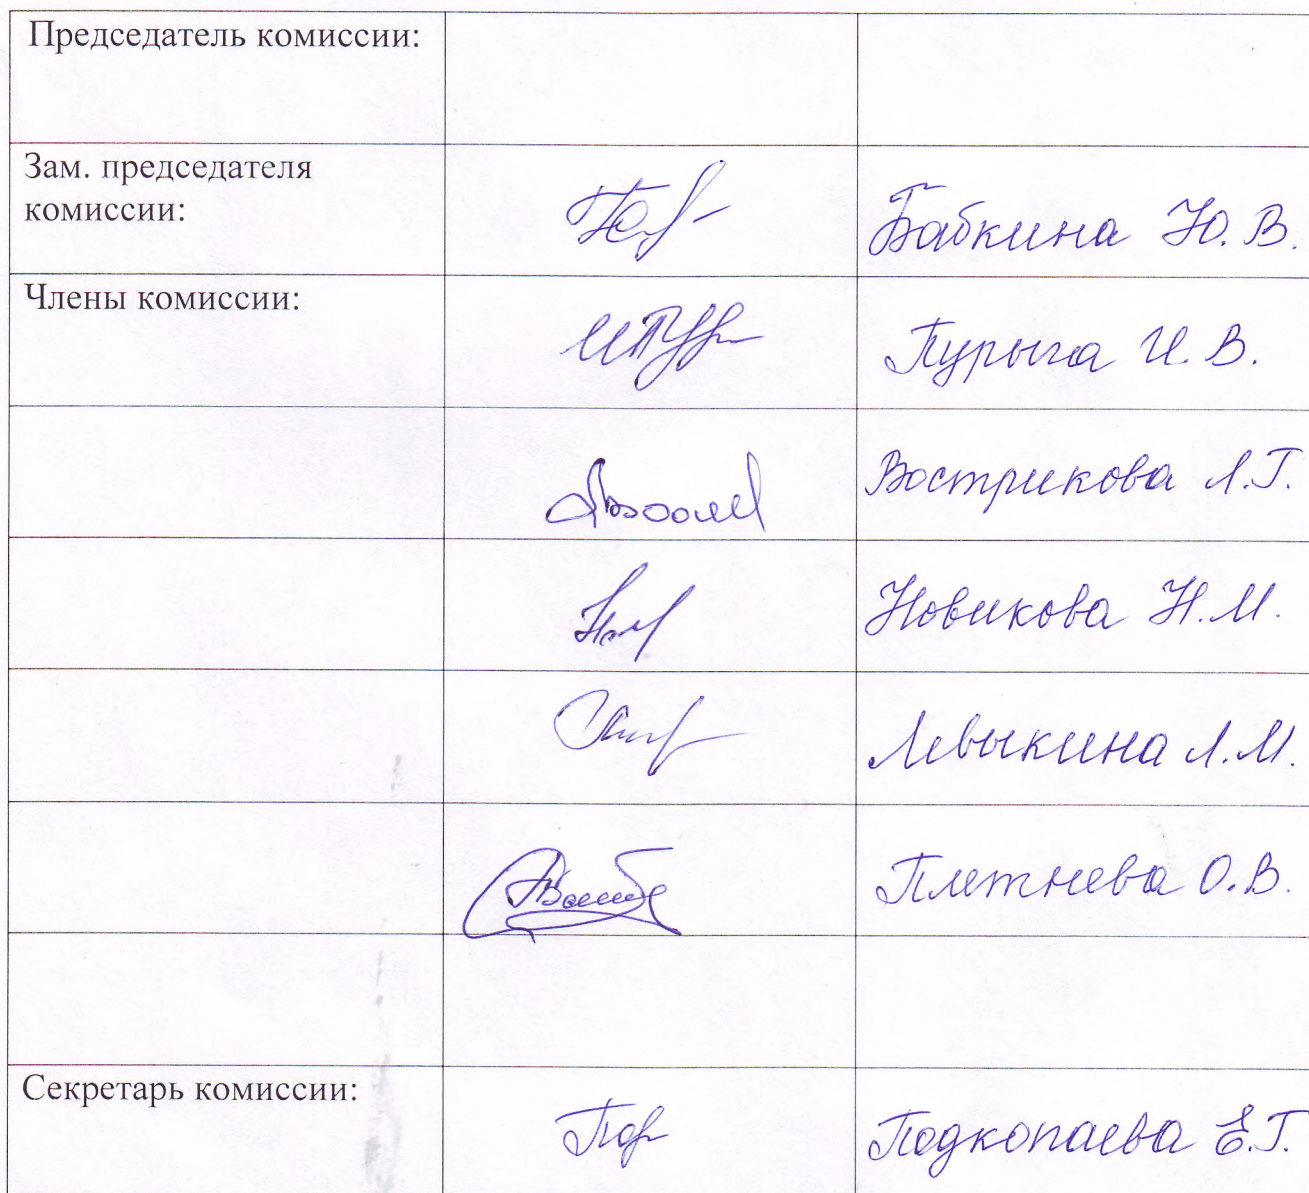 Председатель комиссии:
Зам. председателя
комиссии:
Бабкина Ю. В.
Члены комиссии:
Пурыга И. В.
Вострикова Л.Г.
Новикова Н.М.
Левыкина Л.М.
Плетнева О.В.
Секретарь комиссии:
Подкопаева Е.Г.